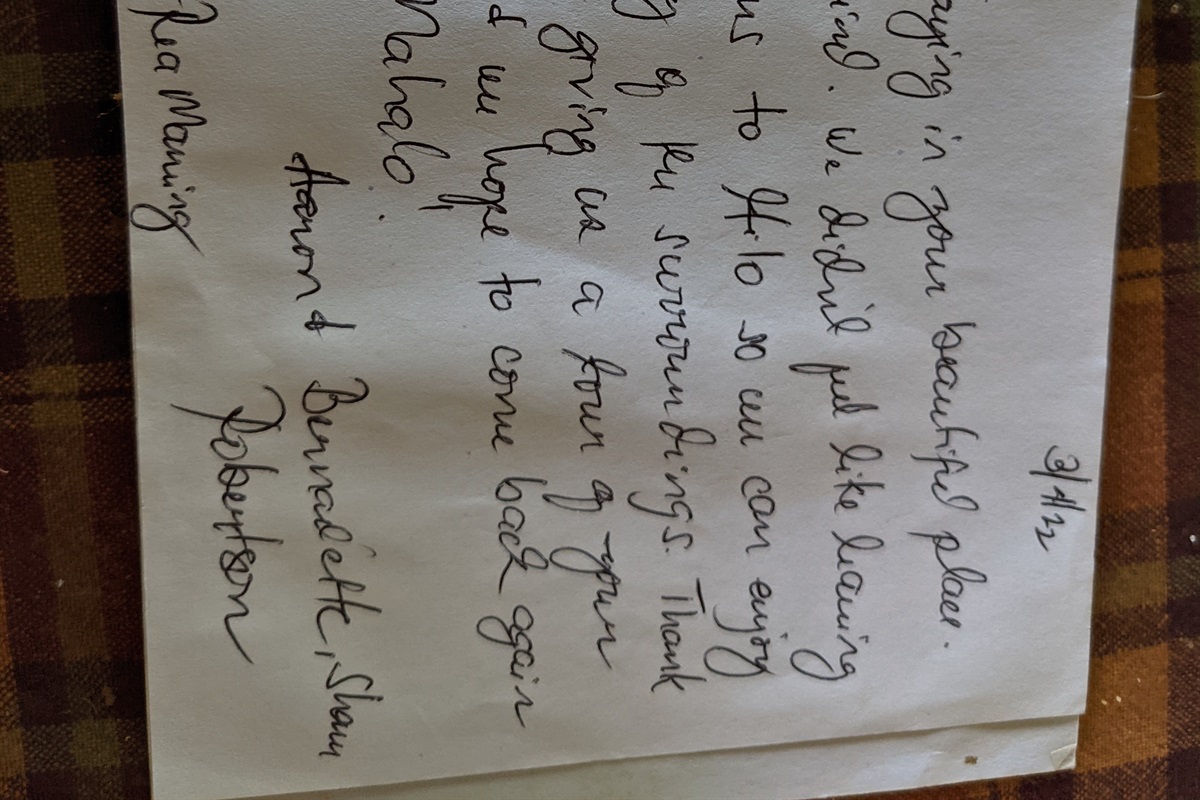 3/4/22
aying in your beautiful place.
ind. We didn't feel like leaving
us to Hilo so we can enjoy
y of the surroundings. Thank
giving us a tour of your
d we hope to come back again
Mahalo,
Aaron & Bernadette, Shaun
Robertson
Rea Manning